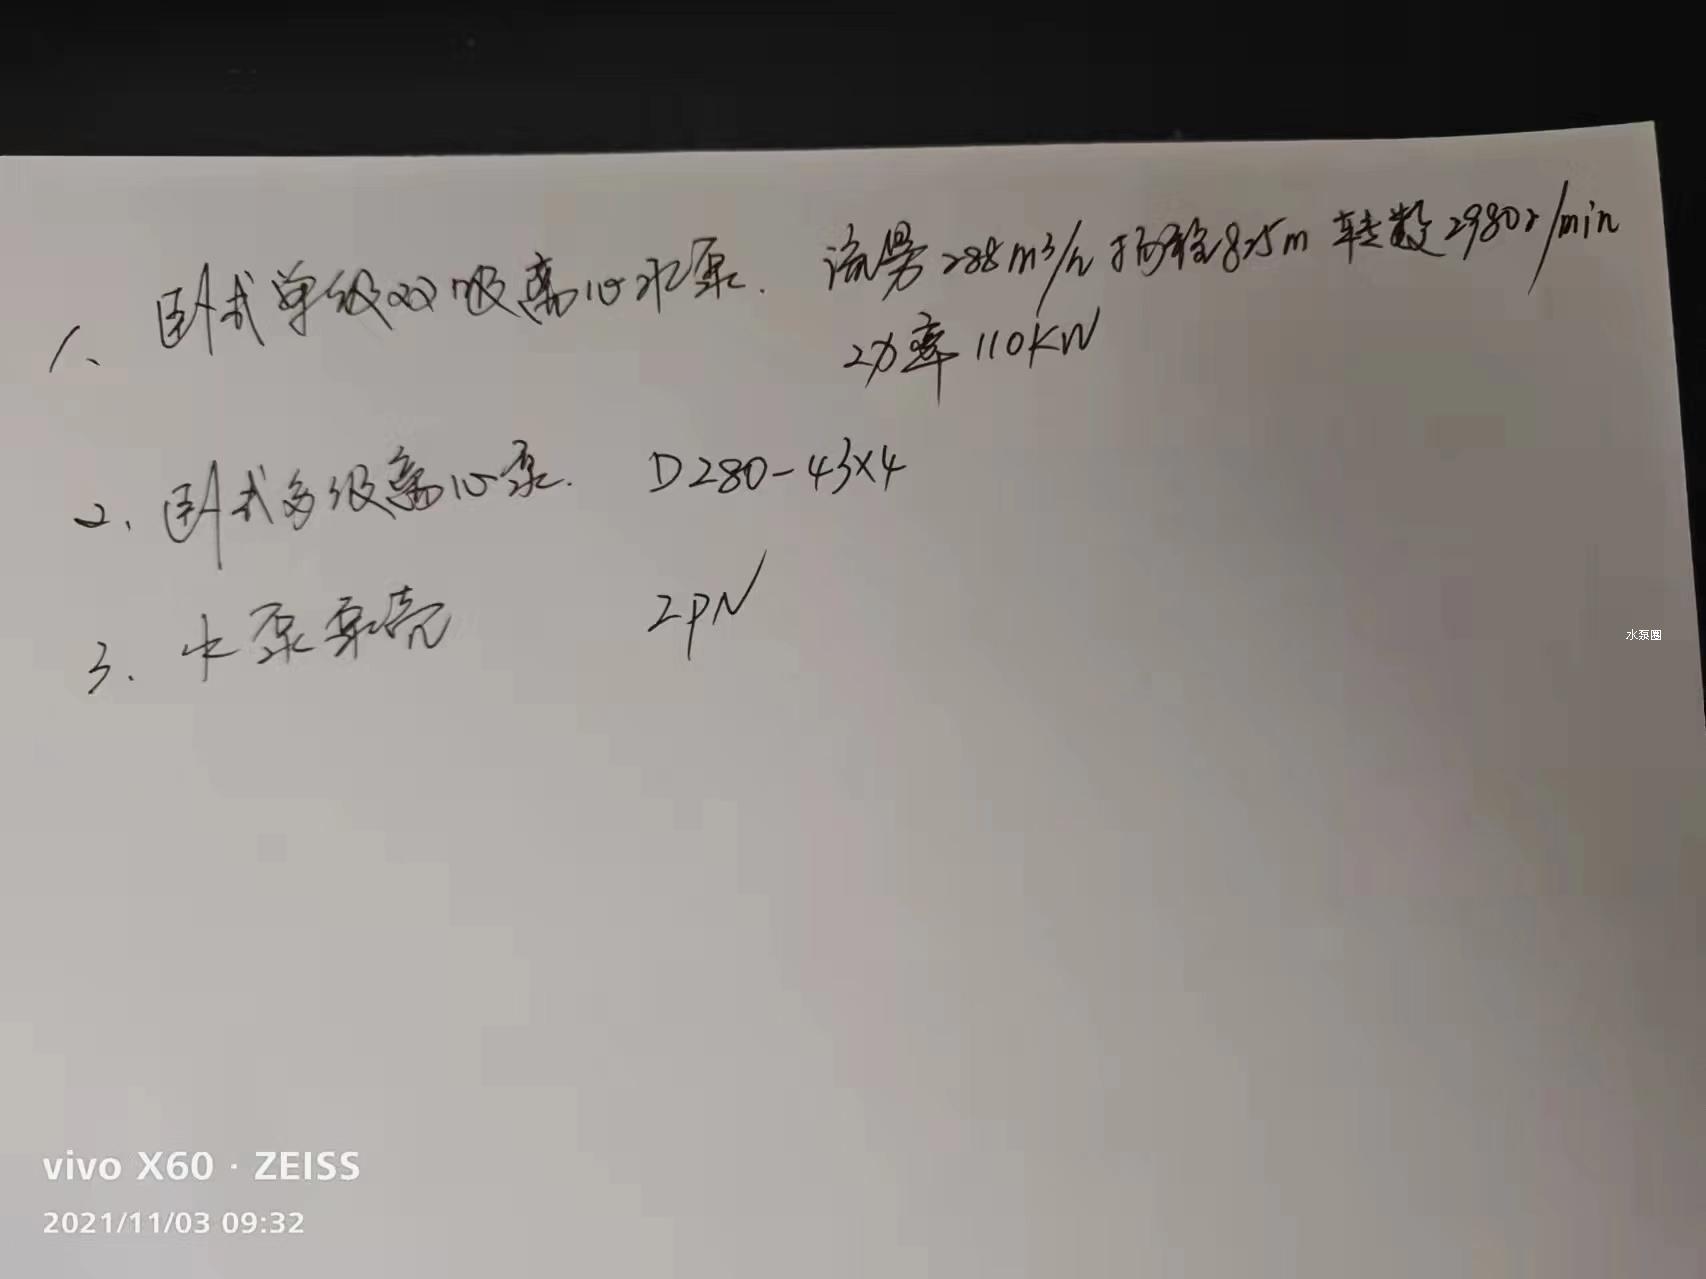 1、卧式单级双吸离心水泵. 流量288m³/h 扬程82.5m 转数2980r/min
功率110KW
2、卧式多级离心泵. D280-43X4
3. 水泵泵壳 2PN
水泵圈
vivo X60 · ZEISS
2021/11/03 09:32